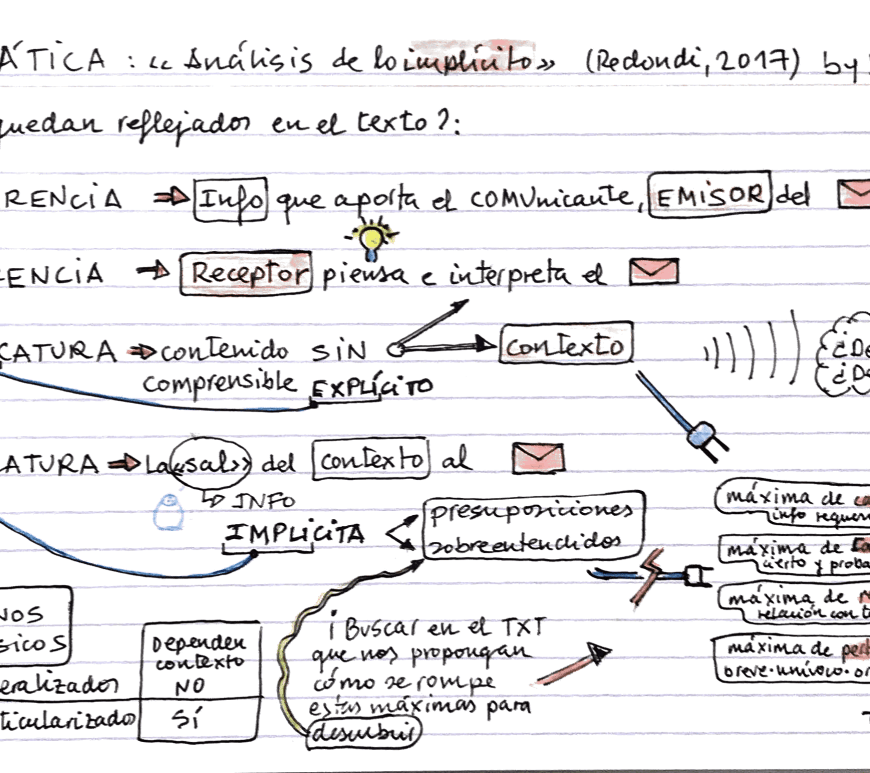 ÁTICA : «Análisis de lo implícito» (Redondi, 2017) by
quedan reflejados en el texto?:
RENCIA ⇒ Info que aporta el comunicante, EMISOR del
ENCIA → Receptor piensa e interpreta el
CATURA ⇒ contenido SIN contexto
comprensible EXPLÍCITO
¿De
¿De
ATURA ⇒ La «sal» del contexto al
↳ INFO
IMPLICITA
presuposiciones
sobreentendidos
máxima de
info
máxima de
cierto y proba
máxima de
relación con t
máxima de
breve·unívoco·or
NOS
SICOS
eralizados
ticularizado
Dependen
contexto
NO
SÍ
¡Buscar en el TXT
que nos propongan
cómo se rompe
estas máximas para
descubrir